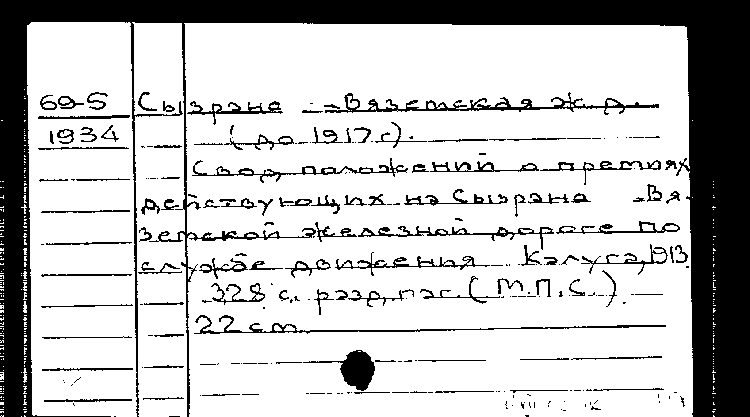 69-5 Сызрано-Вяземская ж.д.
1934 (до 1917 г).
Свод положений о премиях
действующих на Сызрано-Вя-
земской железной дороге по
службе движения Калуга, 1913
328 с. разд. паг. (М.П.С.)
22 см.